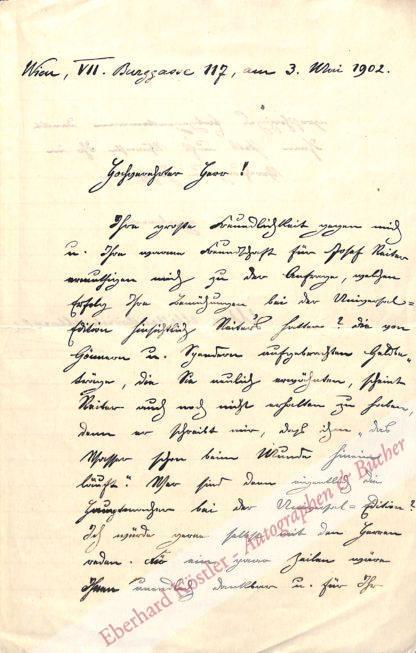 Wien, VII. Burggasse 117, am 3. Mai 1902.
Hochverehrter Herr!
Ihre große Freundlichkeit gegen mich
u. Ihre warme Freundschaft für Josef Reiter
ermuthigen mich zu der Anfrage, welchen
Erfolg Ihre Bemühungen bei der Universal-
Edition hinsichtlich Reiter's hatten? die von
Gönnern u. Spendern aufgebrachten Geldbe-
träge, die Sie neulich erwähnten, scheint
Reiter auch noch nicht erhalten zu haben,
denn er schreibt mir, daß ihm "das
Wasser schon beim Munde hinein
läuft". Wer sind denn eigentlich die
Hauptmacher bei der Universal-Edition?
Ich würde gerne selbst mit den Herren
reden. Für ein paar Zeilen wäre
Ihnen unendlich dankbar u. für Ihr
Eberhard Köstler - Autographen & Bücher